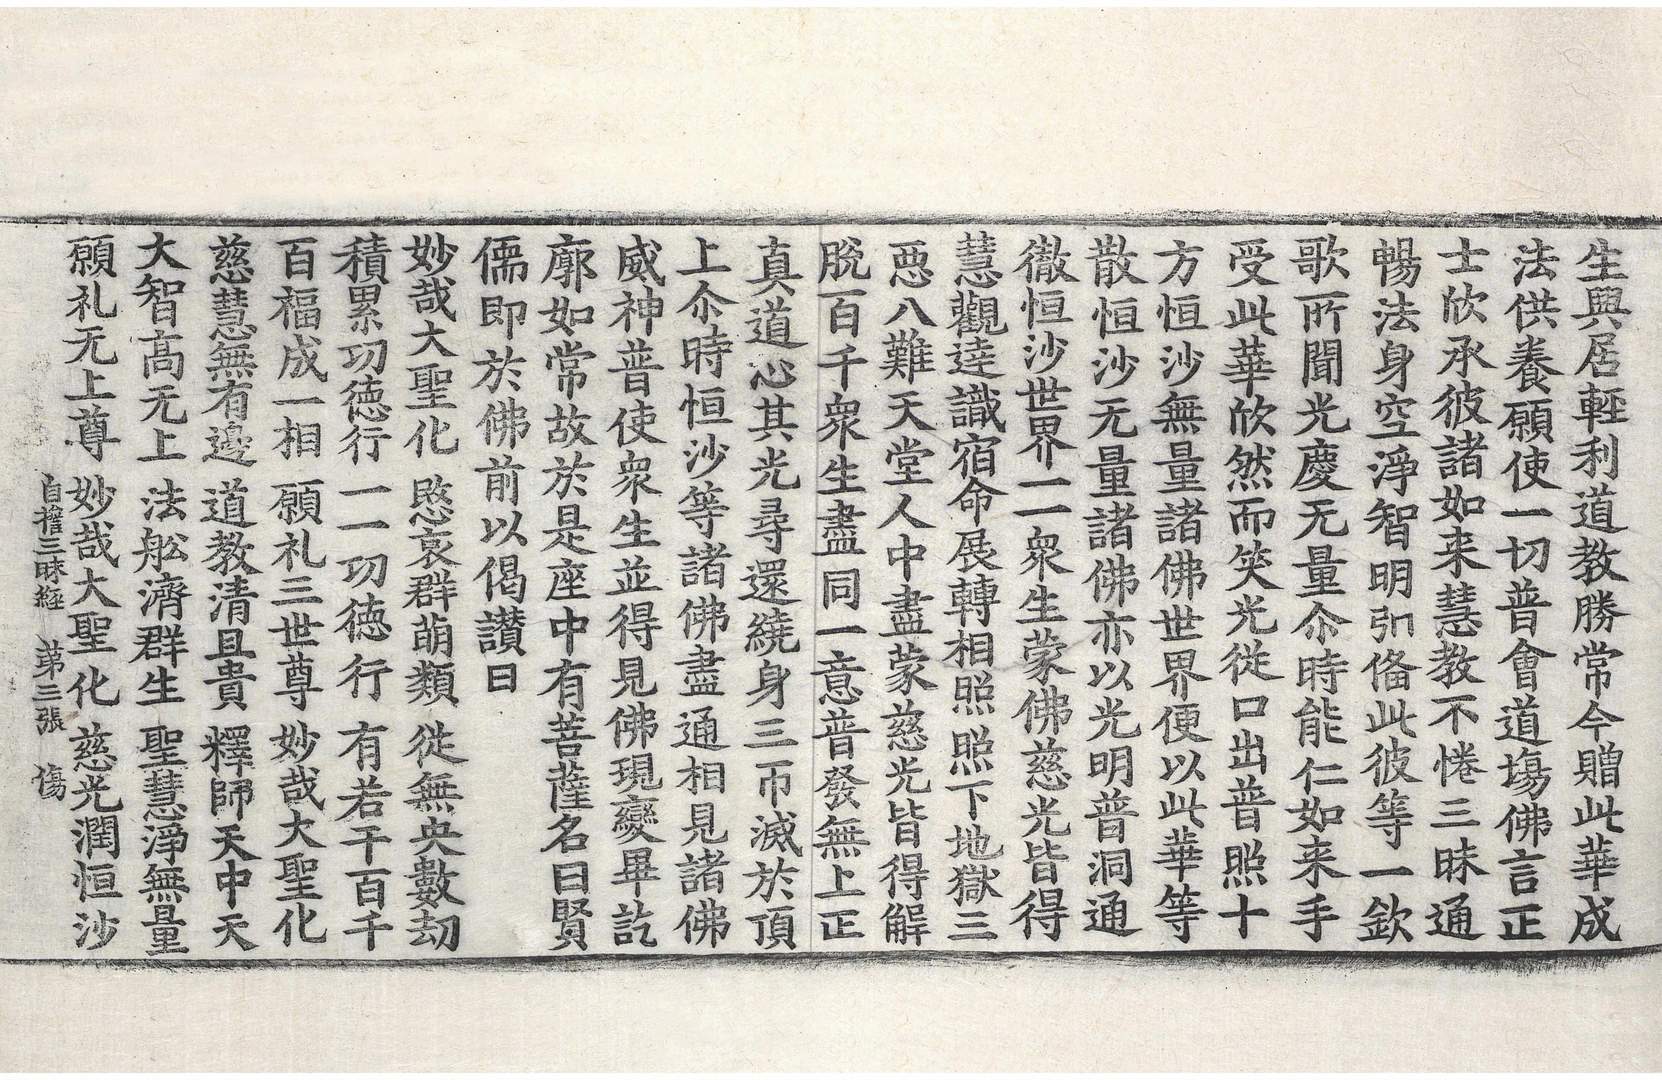 生興居輕利道教勝常今贈此華成
法供養願使一切普會道場佛言正
士欣承彼諸如来慧教不惓三昧通
暢法身空淨智明引俻此彼等一欽
歌所聞光慶无量尒時能仁如来手
受此華欣然而笑光從口出普照十
方恒沙無量諸佛世界便以此華等
散恒沙无量諸佛亦以光明普洞通
徹恒沙世界一一衆生蒙佛慈光皆得
慧觀逹識宿命展轉相照照下地獄三
惡八難天堂人中盡蒙慈光皆得解
脫百千衆生盡同一意普發無上正
真道心其光尋還繞身三帀滅於頂
上尒時恒沙等諸佛盡通相見諸佛
威神普使衆生並得見佛現變畢訖
廓如常故於是座中有菩薩名曰賢
儒即於佛前以偈讃曰
妙哉大聖化　愍哀群萌類　從無央數劫
積累功德行　一一功德行　有若干百千
百福成一相　願礼三世尊　妙哉大聖化
慈慧無有邊　道教清且貴　釋師天中天
大智髙无上　法舩濟群生　聖慧淨無量
願礼无上尊　妙哉大聖化　慈光潤恒沙
自誓三昧經　第三張　傷